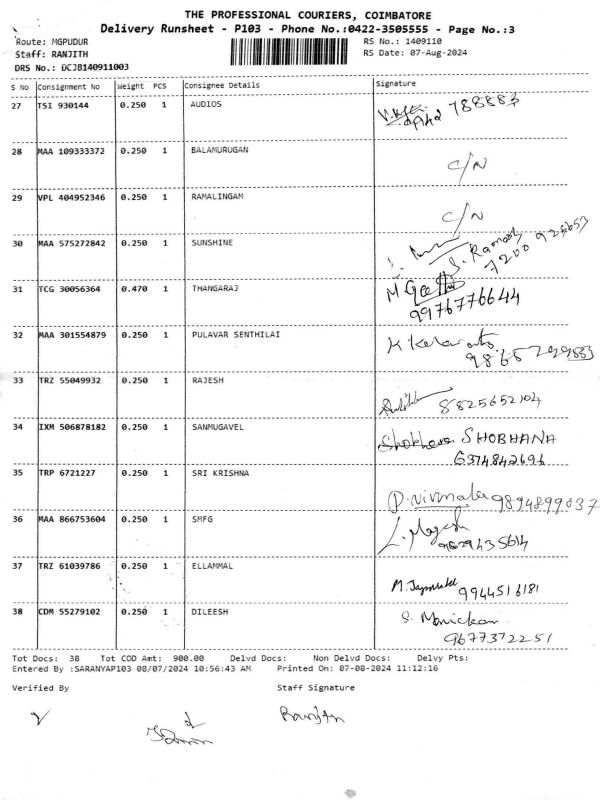 THE PROFESSIONAL COURIERS, COIMBATORE
Delivery Runsheet - P103 - Phone No.:0422-3505555 - Page No.:3
Route: MGPUDUR RS No.: 1409110
Staff: RANJITH RS Date: 07-Aug-2024
DRS No.: DCJB140911003
S No Consignment No Weight PCS Consignee Details Signature
27 TSI 930144 0.250 1 AUDIOS 788883
28 MAA 109333372 0.250 1 BALAMURUGAN C/N
29 VPL 404952346 0.250 1 RAMALINGAM C/N
30 MAA 575272842 0.250 1 SUNSHINE S. Ramesh
7200925653
31 TCG 30056364 0.470 1 THANGARAJ M Geetha
9976776644
32 MAA 301554879 0.250 1 PULAVAR SENTHILAI
33 TRZ 55049932 0.250 1 RAJESH 8825652104
34 IXM 506878182 0.250 1 SANMUGAVEL Shobhana SHOBHANA
6374842696
35 TRP 6721227 0.250 1 SRI KRISHNA P. Nirmala 9894899037
36 MAA 866753604 0.250 1 SMFG
37 TRZ 61039786 0.250 1 ELLAMMAL 9944516181
38 CDM 55279102 0.250 1 DILEESH S. Manickam
9677372251
Tot Docs: 38 Tot COD Amt: 900.00 Delvd Docs: Non Delvd Docs: Delvy Pts:
Entered By :SARANYAP103 08/07/2024 10:56:43 AM Printed On: 07-08-2024 11:12:16
Verified By Staff Signature
Ranjith